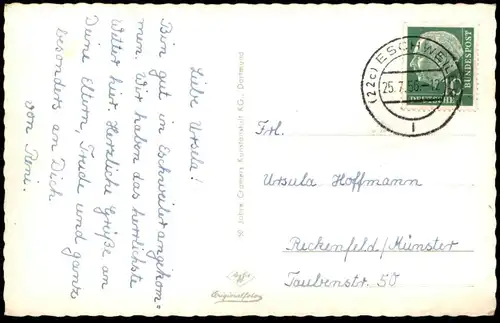 Liebe Ursula!
Bin gut in Eschweiler angekom=
men. Wir haben das herrlichste
Wetter hier. Herzliche Grüße an
Deine Eltern, Trude und ganz
besonders an Dich
von Reni.
50 Jahre Cramers Kunstanstalt KG., Dortmund
Agfa
Originalfoto
(22c) ESCHWEI
25.7.
1
10
DEUTSCHE
BUNDESPOST
Frl.
Ursula Hoffmann
Reckenfeld/Münster
Taubenstr. 50